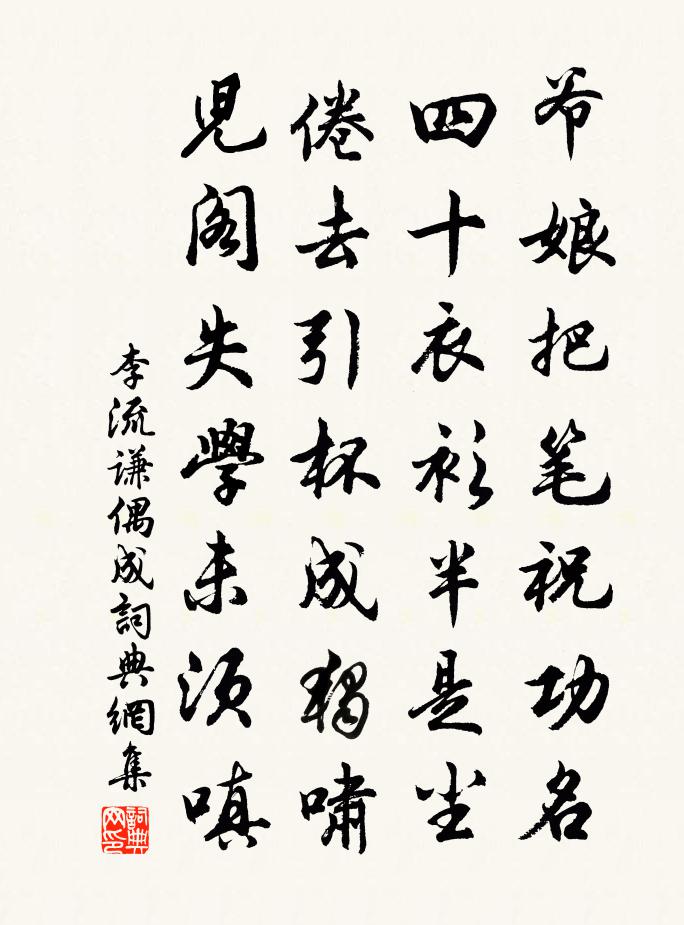 爷娘把笔祝功名
四十衣衫半是尘
倦去引杯成独啸
児阁失學未须嗔
李流谦偶成詞典網集
詞典网印